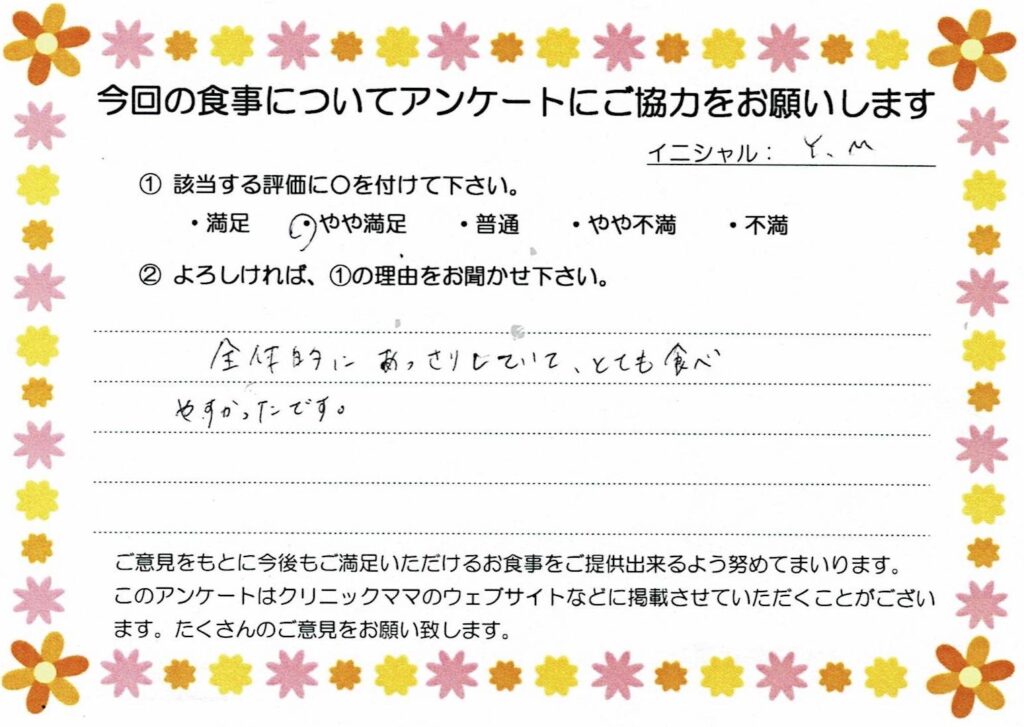 今回の食事についてアンケートにご協力をお願いします
イニシャル： Y. M
① 該当する評価に〇を付けて下さい。
・満足 ・やや満足 ・普通 ・やや不満 ・不満
② よろしければ、①の理由をお聞かせ下さい。
全体的に あっさりしていて、とても食べ
やすかったです。
ご意見をもとに今後もご満足いただけるお食事をご提供出来るよう努めてまいります。
このアンケートはクリニックママのウェブサイトなどに掲載させていただくことがござい
ます。たくさんのご意見をお願い致します。